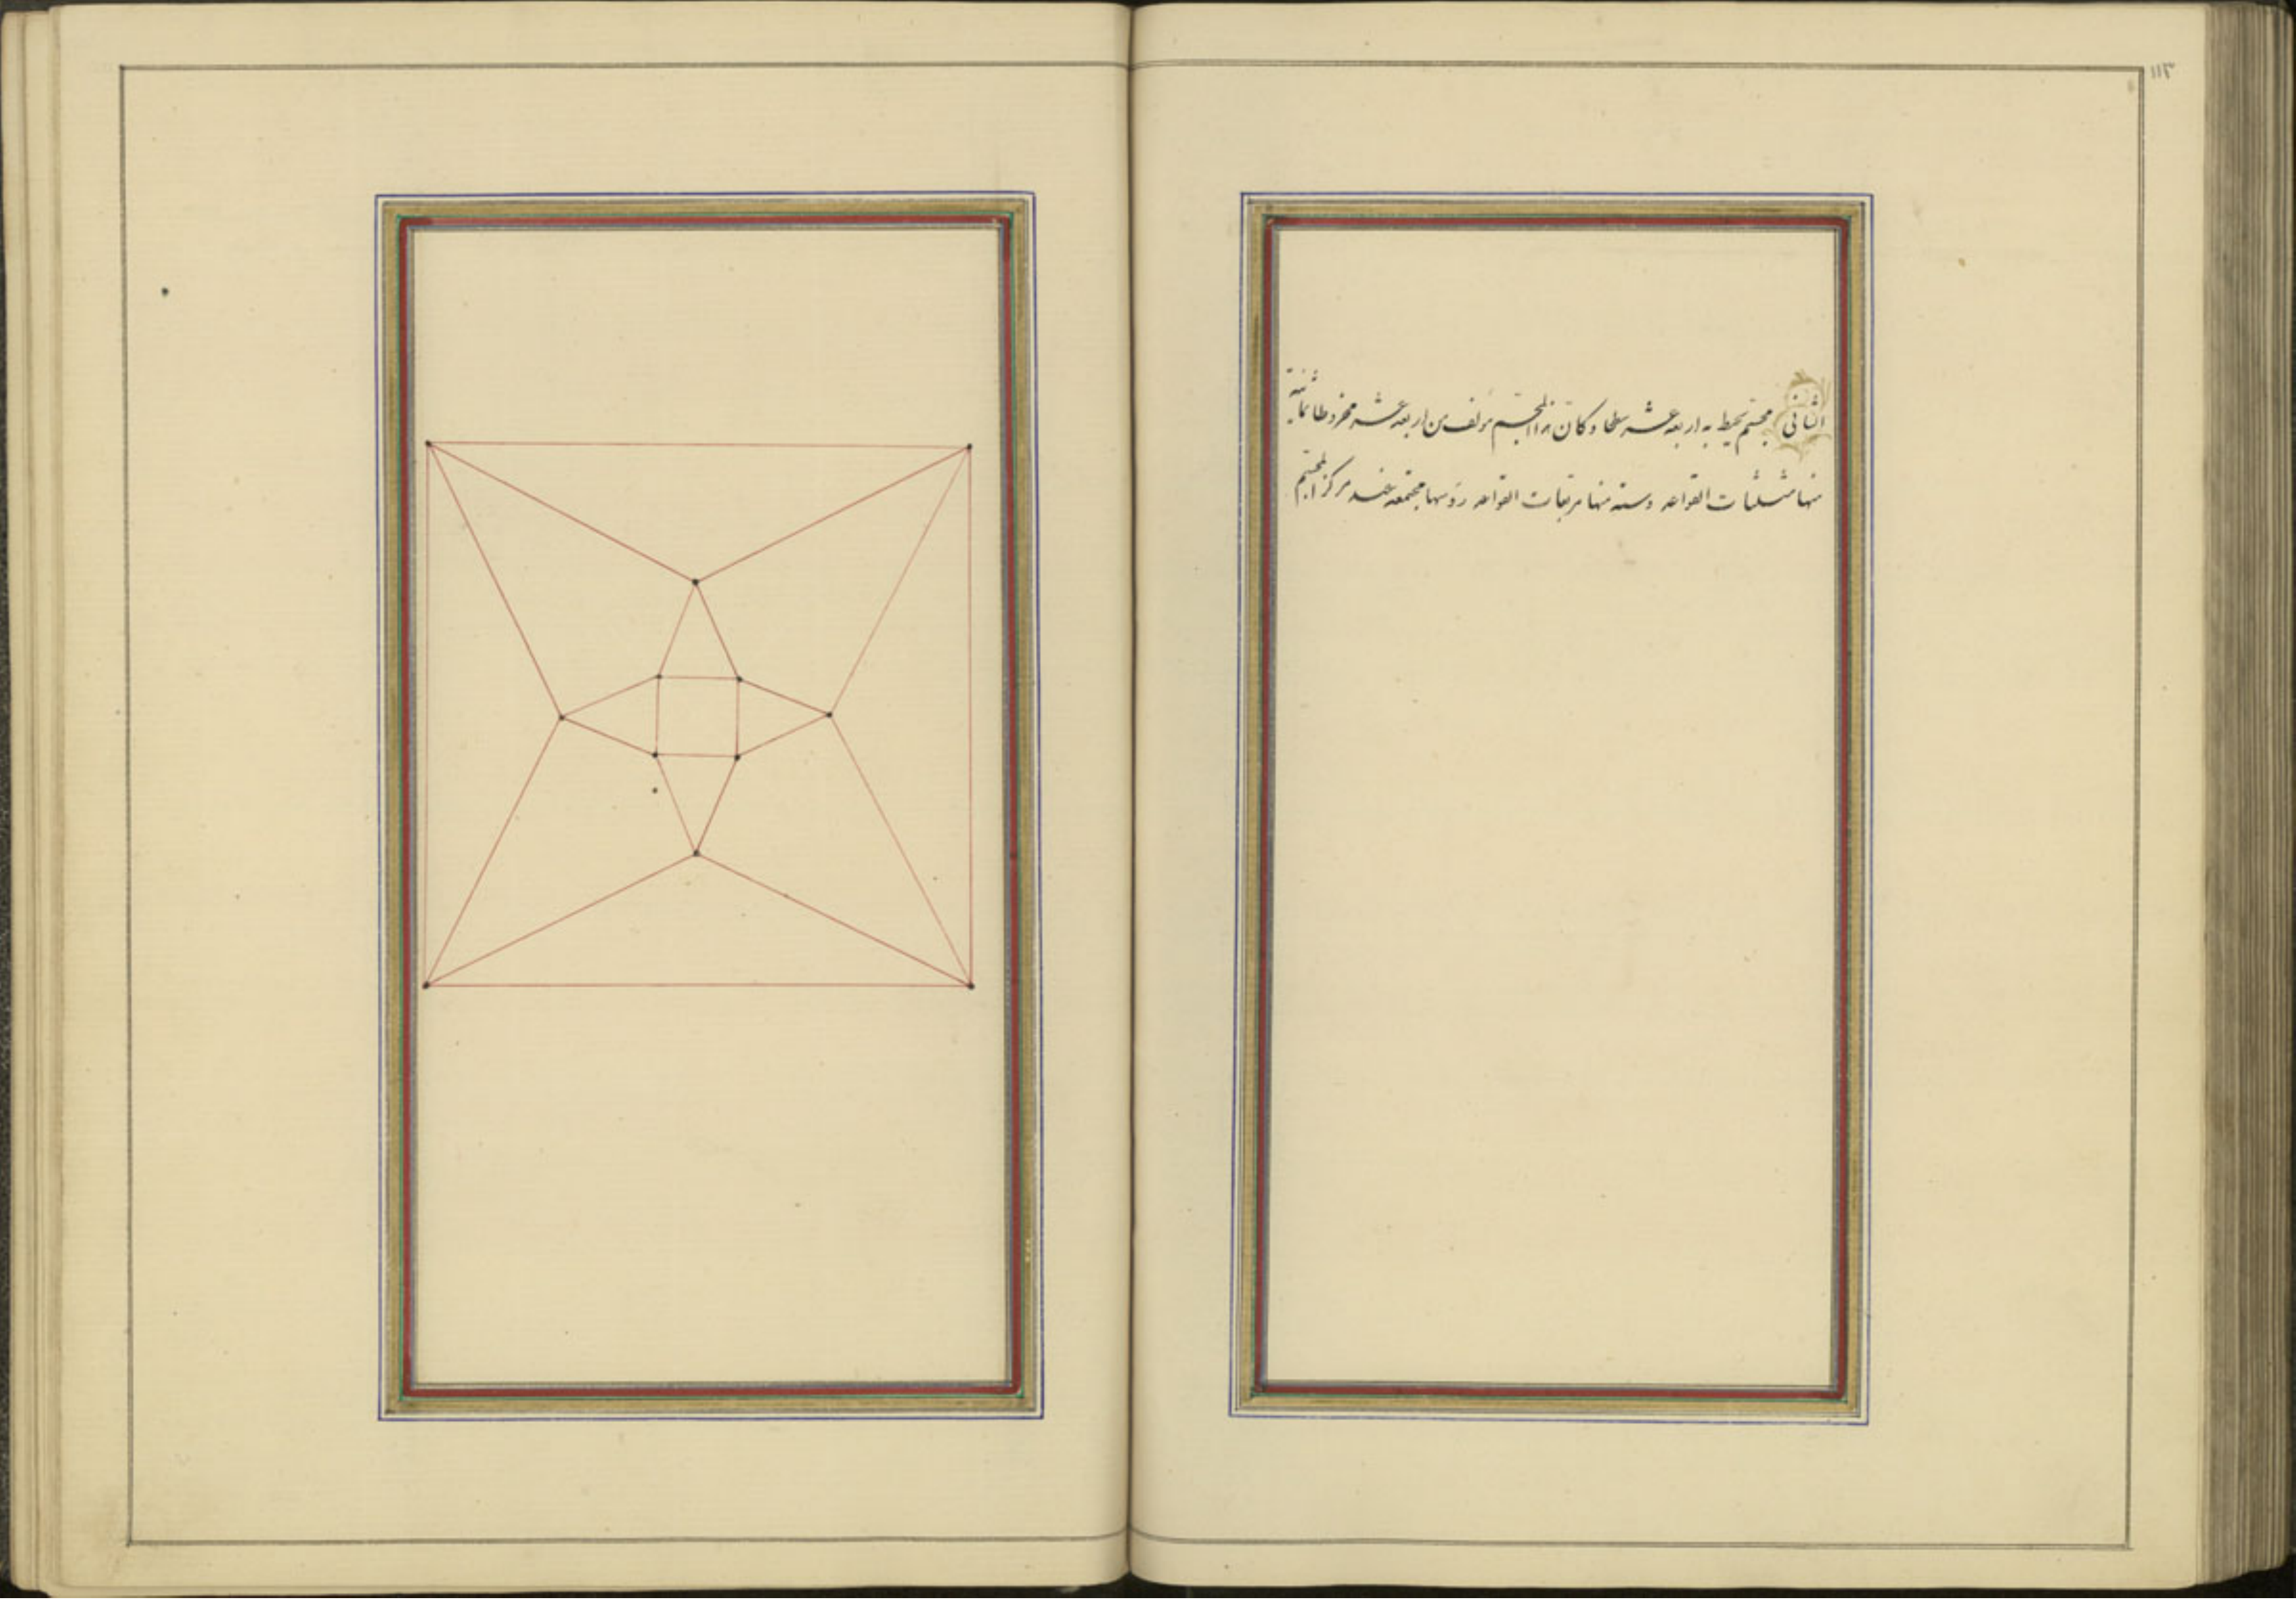 ١١٣
الثانی مجسم یحیط به اربعه عشر سطحا و کان هذا المجسم مؤلف من اربعه عشر مخروطا ثمانیة
منها مثلثات القواعد وسته منها مربعات القواعد رؤسها مجتمعه عند مرکز المجسم